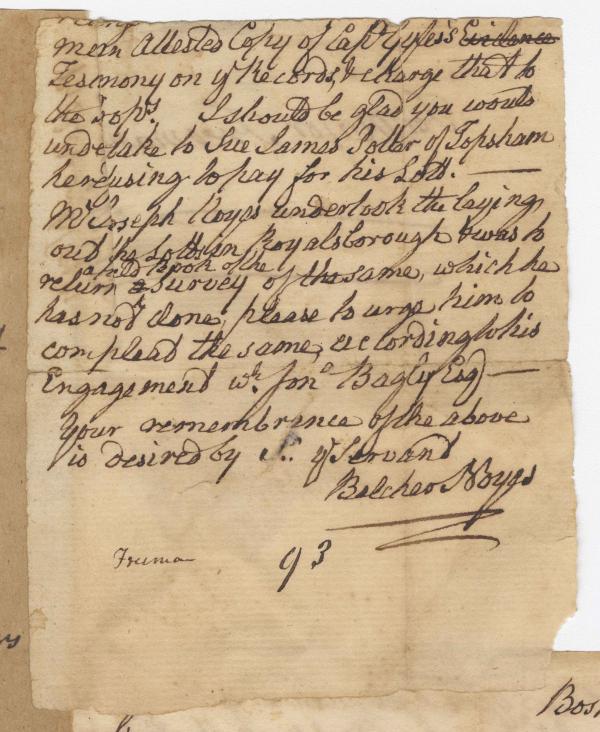 mern Attested Copy of Capt Gyles's Evidence
Testimony on ye Records, & charge that to
the Prop.rs I should be glad you would
undertake to Sue James Potter of Topsham
he refusing to pay for his Lott. —
Mr Joseph Noyes undertook the laying
out the Lotts in Royalsborough & was to
a field Book of the
return a Survey of the same, which he
has not done, please to urge him to
compleat the same, according to his
Engagement wth Jona Bagley Esq —
Your remembrance of the above
is desired by S.. yr Servant
Belcher Noyes
Freeman
93
Bos